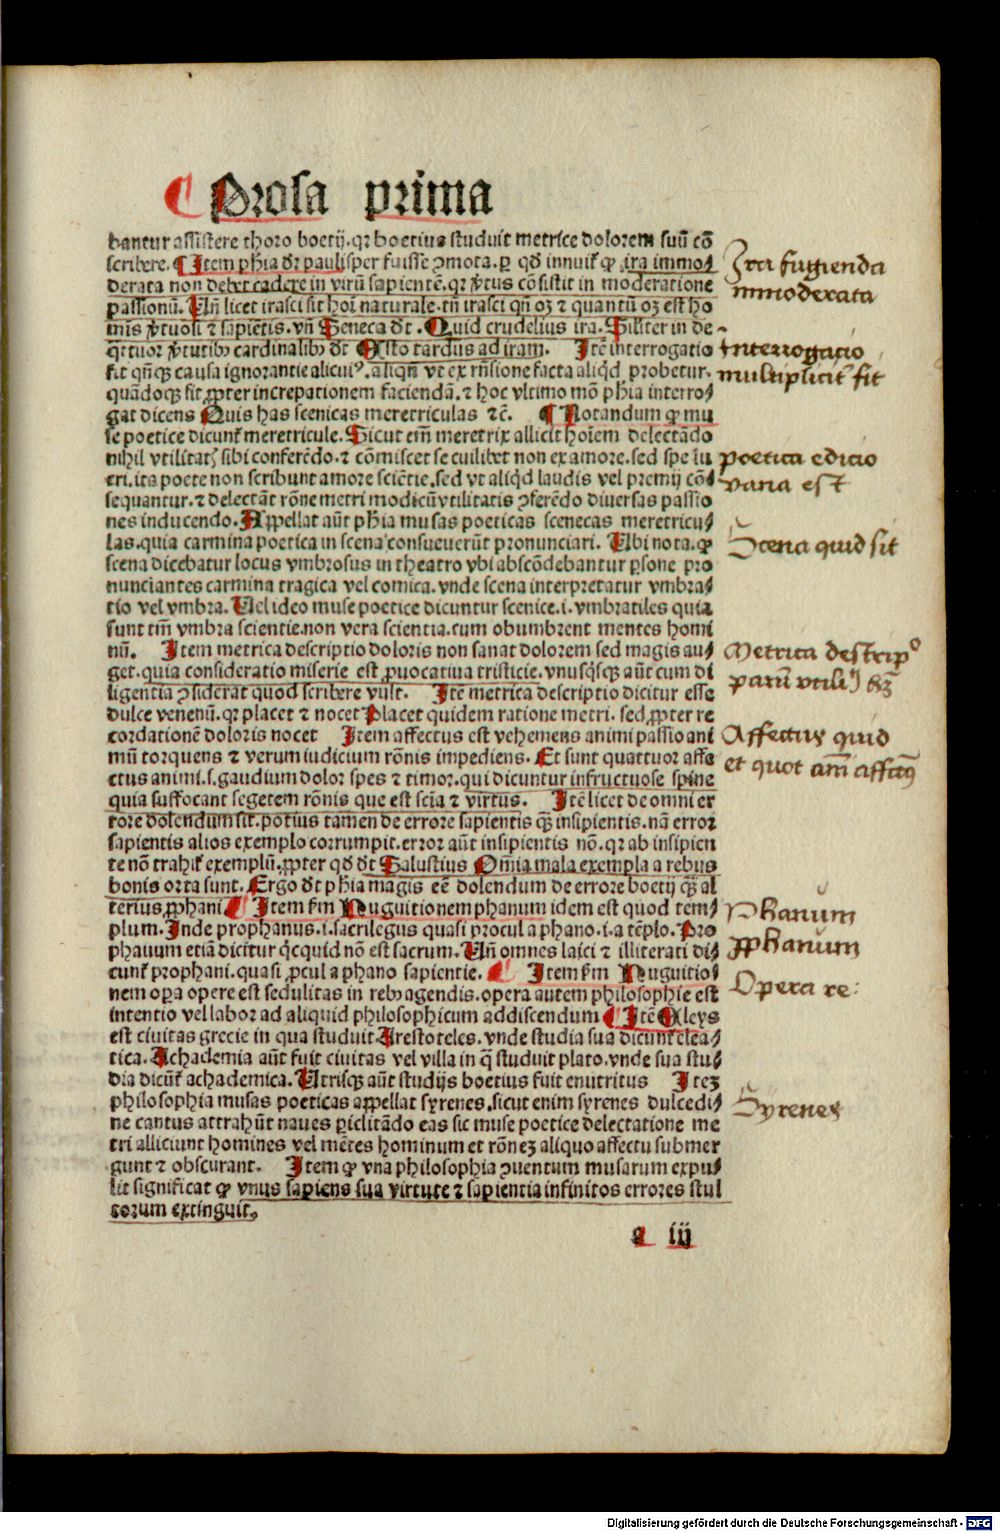 Prosa prima
bantur assistere thoro boetij. qr boetius studuit metrice dolorem suũ cõ
scribere. ¶ Item phia dr paulisper fuisse ꝯmota. ꝑ qd innuit̃ ꝙ ira immo⸗
derata non debet cadere in virũ sapientẽ. qr v̓tus cõsistit in moderatione
passionũ. Uñ licet irasci sit hoĩ naturale. tñ irasci qñ oꝫ ⁊ quantũ oꝫ est ho
mĩs v̓tuosi ⁊ sapiẽtis. vñ Seneca dt. Quid crudelius ira. Siliter in de
qttuor v̓tutibꝰ cardinalibꝰ dt Esto tardus ad iram. Itẽ interrogatio
fit qñqꝫ causa ignorantie alicuiꝰ. aliqñ vt ex rñsione facta aliqd probetur.
quãdoqꝫ fit ꝓpter increpationem faciendã. ⁊ hoc vltimo mõ phia interro⸗
gat dicens Quis has scenicas meretriculas ⁊c̃. ¶ Notandum ꝙ mu
se poetice dicunt̃ meretricule. Sicut em̃ meretrix allicit hoĩem delectãdo
nihil vtilitatꝭ sibi conferẽdo. ⁊ cõmiscet se cuilibet non ex amore. sed spe lu
cri. ita poete non scribunt amore sciẽtie. sed vt aliqd laudis vel premij cõ⸗
sequantur. ⁊ delectãt rõne metri modicũ vtilitatis ꝯferẽdo diuersas passio
nes inducendo. Appellat aũt phia musas poeticas scenecas meretricu⸗
las. quia carmina poetica in scena consueuerũt pronunciari. Ubi nota. ꝙ
scena dicebatur locus vmbrosus in theatro vbi abscõdebantur ꝑsone pro
nunciantes carmina tragica vel comica. vnde scena interpretatur vmbra⸗
tio vel vmbra. Uel ideo muse poetice dicuntur scenice. i. vmbratiles quia
sunt tm̃ vmbra scientie. non vera scientia. cum obumbrent mentes homi
nũ. Item metrica descriptio doloris non sanat dolorem sed magis au⸗
get. quia consideratio miserie est ꝓuocatiua tristicie. vnusqsqꝫ aũt cum di
ligentia ꝯsiderat quod scribere vult. Itẽ metrica descriptio dicitur esse
dulce venenũ. qr placet ⁊ nocet Placet quidem ratione metri. sed ꝓpter re
cordationẽ doloris nocet Item affectus est vehemens animi passio ani
mũ torquens ⁊ verum iudicium rõnis impediens. Et sunt quattuor affe
ctus animi. s. gaudium dolor spes ⁊ timor. qui dicuntur infructuose spine
quia suffocant segetem rõnis que est scĩa ⁊ virtus. Itẽ licet de omni er
rore dolendum sit. potius tamen de errore sapientis qꝫ̃ insipientis. nã error
sapientis alios exemplo corrumpit. error aũt insipientis nõ. qr ab insipien
te nõ trahit̃ exemplũ. ꝓpter qd dt Salustius Om̃ia mala exempla a rebus
bonis orta sunt. Ergo dt phia magis eẽ dolendum de errore boetij qꝫ̃ al
terius ꝓphani ¶ Item ẜm Huguitionem phanum idem est quod tem⸗
plum. Inde prophanus. i. sacrilegus quasi procul a phano. i. a tẽplo. Pro
phanum etiã dicitur qcquid nõ est sacrum. Uñ omnes laici ⁊ illiterati di⸗
cunt̃ prophani. quasi ꝓcul a phano sapientie. ¶ Item ẜm Huguitio⸗
nem oꝑa opere est sedulitas in rebꝰ agendis. opera autem philosophie est
intentio vel labor ad aliquid philosophicum addiscendum ¶ Itẽ Eleys
est ciuitas grecie in qua studuit Arestoteles. vnde studia sua dicunt̃ elea⸗
tica. Achademia aũt fuit ciuitas vel villa in q̃ studuit plato. vnde sua stu⸗
dia dicunt̃ achademica. Utrisqꝫ aũt studijs boetius fuit enutritus Iteꝫ
philosophia musas poeticas appellat syrenes. sicut enim syrenes dulcedi⸗
ne cantus attrahũt naues ꝑiclitãdo eas sic muse poetice delectatione me
tri alliciunt homines vel mẽtes hominum et rõneꝫ aliquo affectu submer
gunt ⁊ obscurant. Item ꝙ vna philosophia ꝯuentum musarum expu⸗
lit significat ꝙ vnus sapiens sua virtute ⁊ sapientia infinitos errores stul
torum extinguit.
a iij
Ira fugienda
inmoderata
Interrogacio
multiplicit̃ fit
poetica edicio
varia est
Scena quid sit
Metrica descripᵒ
parũ vtil
Affectus quid
et quot
Phanum
ꝓphanum
Opera re:
Syrenes
Digitalisierung gefördert durch die Deutsche Forschungsgemeinschaft - DFG